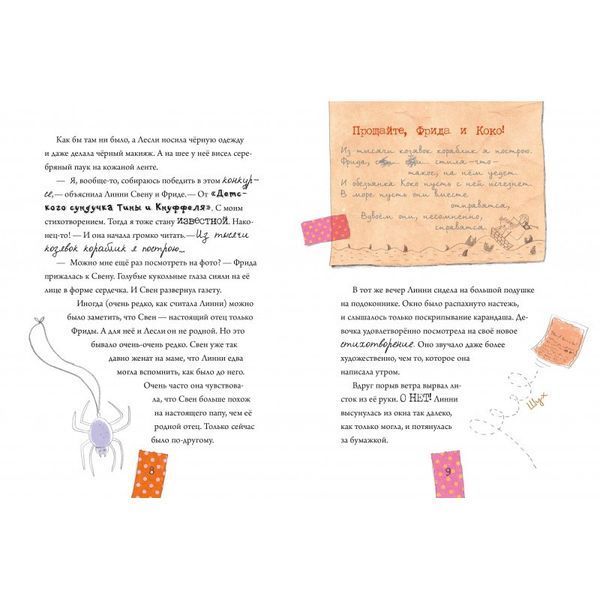 Как бы там ни было, а Лесли носила чёрную одежду
и даже делала чёрный макияж. А на шее у неё висел сере-
бряный паук на кожаной ленте.
— Я, вообще-то, собираюсь победить в этом конкур-
се, — объяснила Линни Свену и Фриде. — От «Детс-
кого сундучка Тины и Кнуффеля». С моим
стихотворением. Тогда я тоже стану известной. Нако-
нец-то! — И она начала громко читать. — Из тысячи
козявок кораблик я построю...
— Можно мне ещё раз посмотреть на фото? — Фрида
прижалась к Свену. Голубые кукольные глаза сияли на её
лице в форме сердечка. И Свен развернул газету.
Иногда (очень редко, как считала Линни) можно
было заметить, что Свен — настоящий отец только
Фриды. А для неё и Лесли он не родной. Но это
бывало очень-очень редко. Свен уже так
давно женат на маме, что Линни едва
могла вспомнить, как было до него.
Очень часто она чувствова-
ла, что Свен больше похож
на настоящего папу, чем её
родной отец. Только сейчас
было по-другому.
8
Прощайте, Фрида и Коко!
Из тысячи козявок кораблик я построю.
Фрида, стиля-что-
такое, на нём уедет
И обезьянка Коко пусть с ней исчезнет.
В море пусть они вместе
отправятся,
Вдвоём они, несомненно,
справятся.
В тот же вечер Линни сидела на большой подушке
на подоконнике. Окно было распахнуто настежь,
и слышалось только поскрипывание карандаша. Де-
вочка удовлетворённо посмотрела на своё новое
стихотворение. Оно звучало даже более
художественно, чем то, которое она
написала утром.
Вдруг порыв ветра вырвал ли-
сток из её руки. О НЕТ! Линни
высунулась из окна так далеко,
как только могла, и потянулась
за бумажкой.
Шух
9